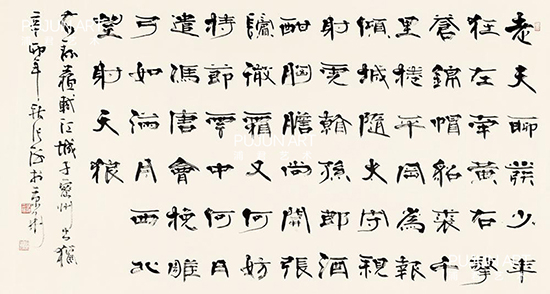 老夫聊發少年
狂左牽黃右擎
蒼錦帽貂裘千
里捲平岡為報
傾城隨太守親
射虎看孫郎酒
酣胸膽尚開張
鬢微霜又何妨
持節雲中何日
遣馮唐會挽雕
弓如滿月西北
望射天狼
蘇軾江城子密州出獵
辛卯年
PUJUN ART